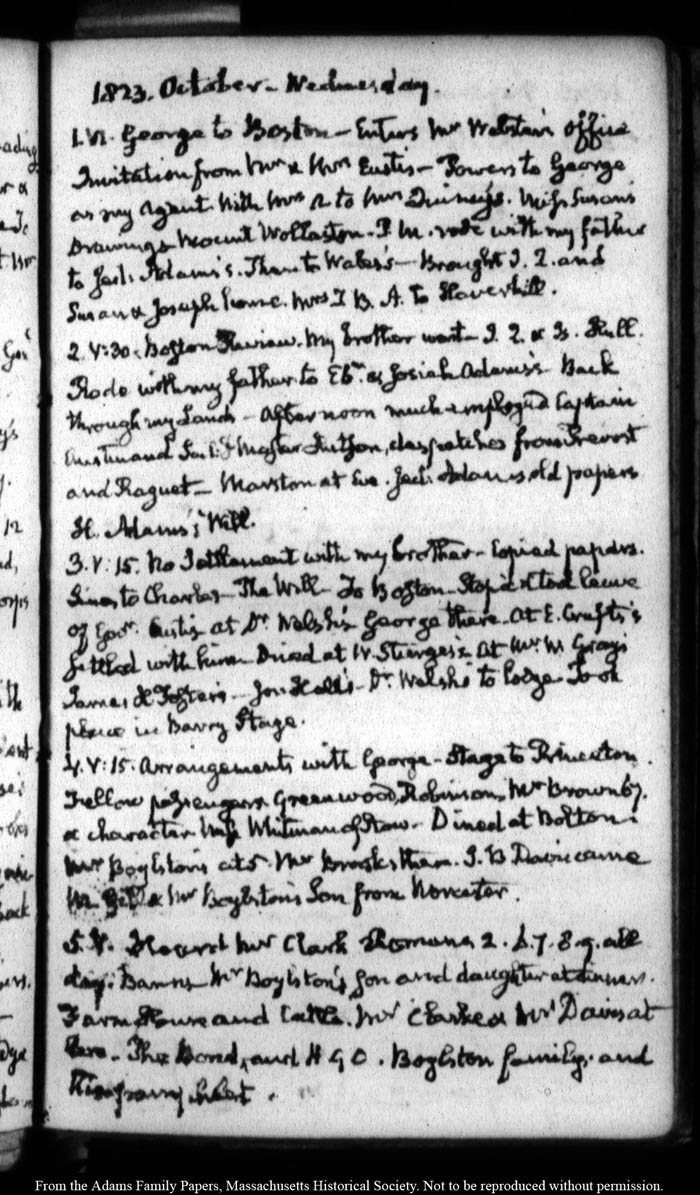 1823. October. Wednesday.
1. VI. George to Boston — Enters Mr Webster's office
Invitation from Mr & Mrs Eustis — Powers to George
as my Agent. With Mrs A to Mrs Quincy's. Miss Susan's
Drawings Mount Wollaston. P.M. rode with my father
to Jed: Adams's. Thence to Wales's — Brought J. Q. and
Susan & Joseph home. Mrs T B. A. to Haverhill.
2. V:30. Boston Review. My brother went — J. Q. & Is. Hull.
Rode with my father to Ebr. & Josiah Adams's. Back
through my Lands — Afternoon much employed Captain
and despatches from Prevost
and Raguet — Marston at Eve. Jed: Adams's old papers
H. Adams's Will.
3. V:15. No Settlement with my brother — Copied papers.
Lines to Charles — The Will — To Boston — Stop'd & took leave
of Govr. Eustis at Dr. Welsh's George there. At E. Crufts's
Settled with him. Dined at W. Sturgis's. At Mr. W. Gray's
James H Foster's — Jos: Hall's — Dr. Welsh's to lodge. Took
place in Barry Stage.
4. V:15. Arrangements with George — Stage to Princeton.
Fellow passengers Greenwood, Robinson, Mr Brown 67.
a character Miss Whitman of Stow. Dined at Bolton.
Mr Boylston's at 5. Mr Brooks there. J. B Davis came
& Mr Boylston's Son from Worcester.
5. V. Heard Mr Clark Romans 2. 6. 7. 8. 9. all
day. Mr Boylston's Son and daughter at dinner.
Farm House and Cattle. Mr Clarke & Mr Davis at
Eve. The Bond, and H G O. Boylston family. and
From the Adams Family Papers, Massachusetts Historical Society. Not to be reproduced without permission.